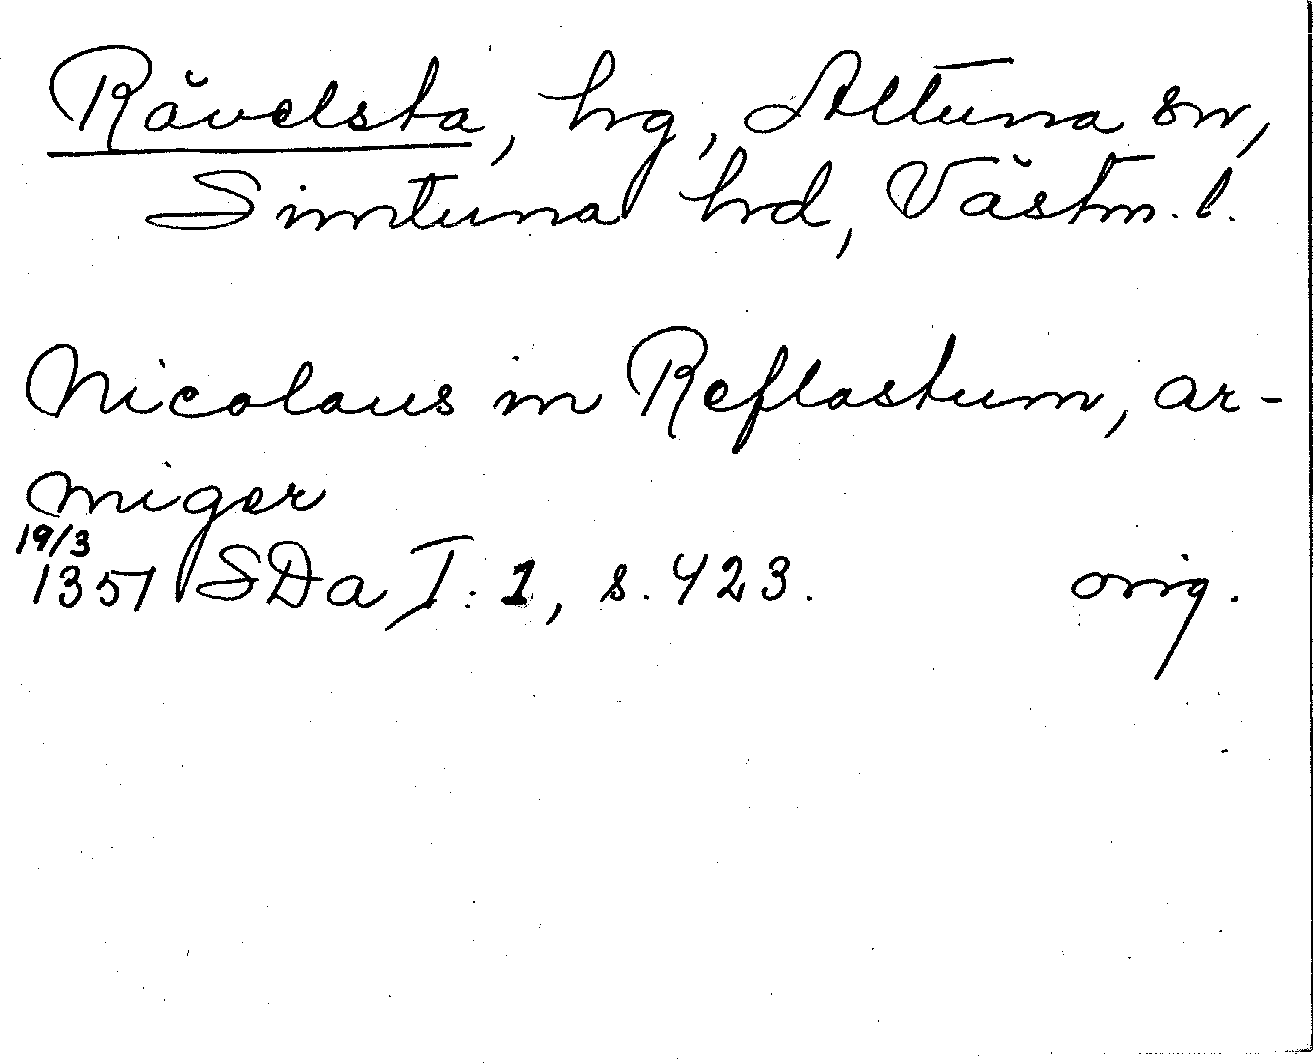 Rävelsta, hg, Altuna sn,
Simtuna hrd, Västm. l.
Nicolaus in Reflastum, ar-
miger
19/3
1351 SDa I: 1, s. 423. orig.